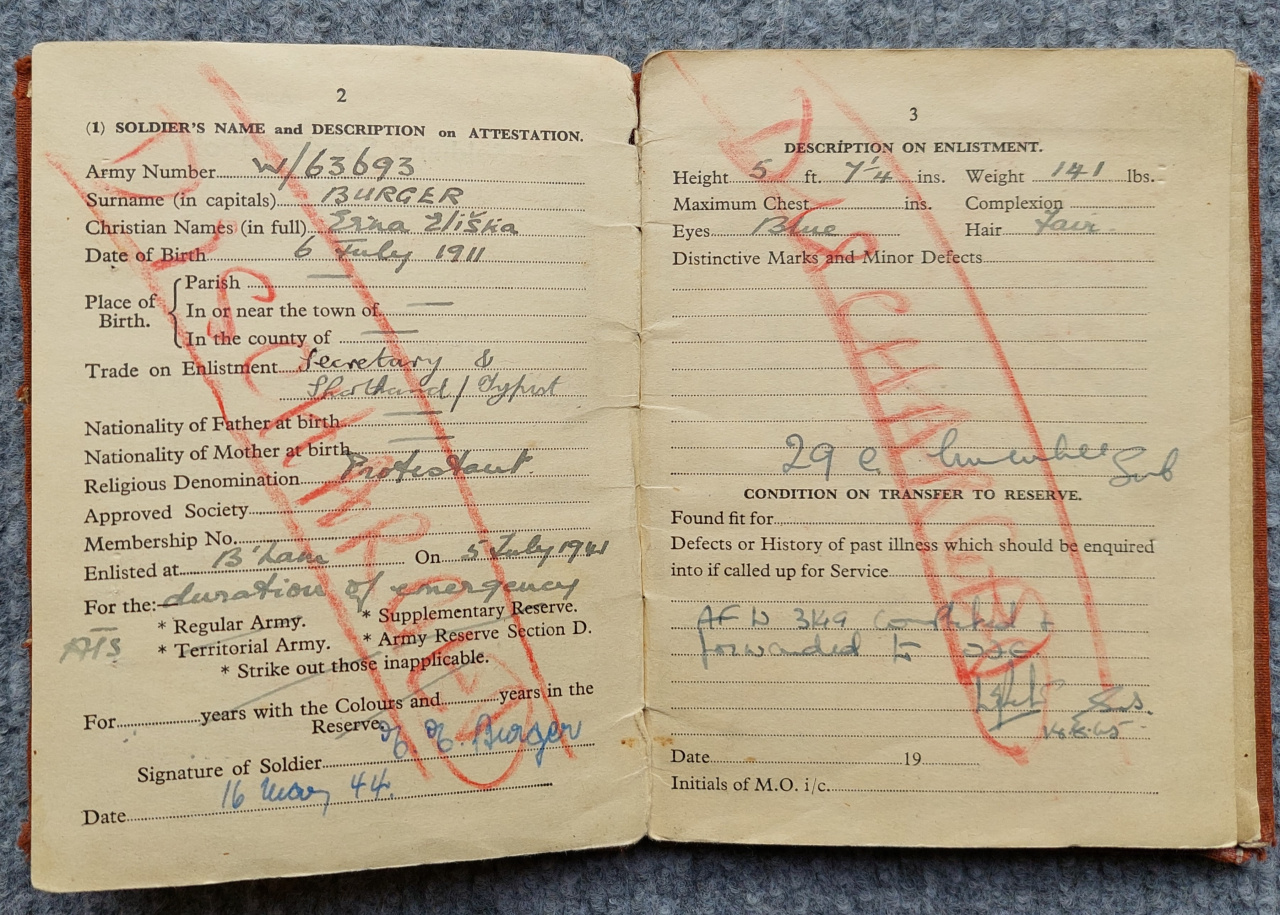 2
(1) SOLDIER'S NAME and DESCRIPTION on ATTESTATION.
Army Number W/63693
Surname (in capitals) BURGER
Christian Names (in full) Erna Eliška
Date of Birth 6 July 1911
Place of Birth.
Parish —
In or near the town of —
In the county of —
Trade on Enlistment Secretary &
Shorthand/Typist
Nationality of Father at birth —
Nationality of Mother at birth —
Religious Denomination Protestant
Approved Society
Membership No.
Enlisted at B'ham On 5 July 1941
For the:— duration of emergency
* Regular Army. * Supplementary Reserve.
ATS * Territorial Army. * Army Reserve Section D.
* Strike out those inapplicable.
For years with the Colours and years in the
Reserve.
Signature of Soldier Burger
Date 16 May 44.
DISCHARGED
3
DESCRIPTION ON ENLISTMENT.
Height 5 ft. 7¼ ins. Weight 141 lbs.
Maximum Chest ins. Complexion
Eyes Blue Hair Fair
Distinctive Marks and Minor Defects
29
CONDITION ON TRANSFER TO RESERVE.
Found fit for
Defects or History of past illness which should be enquired
into if called up for Service
AFW 3149 completed &
forwarded to
Date 19
Initials of M.O. i/c.
DISCHARGED